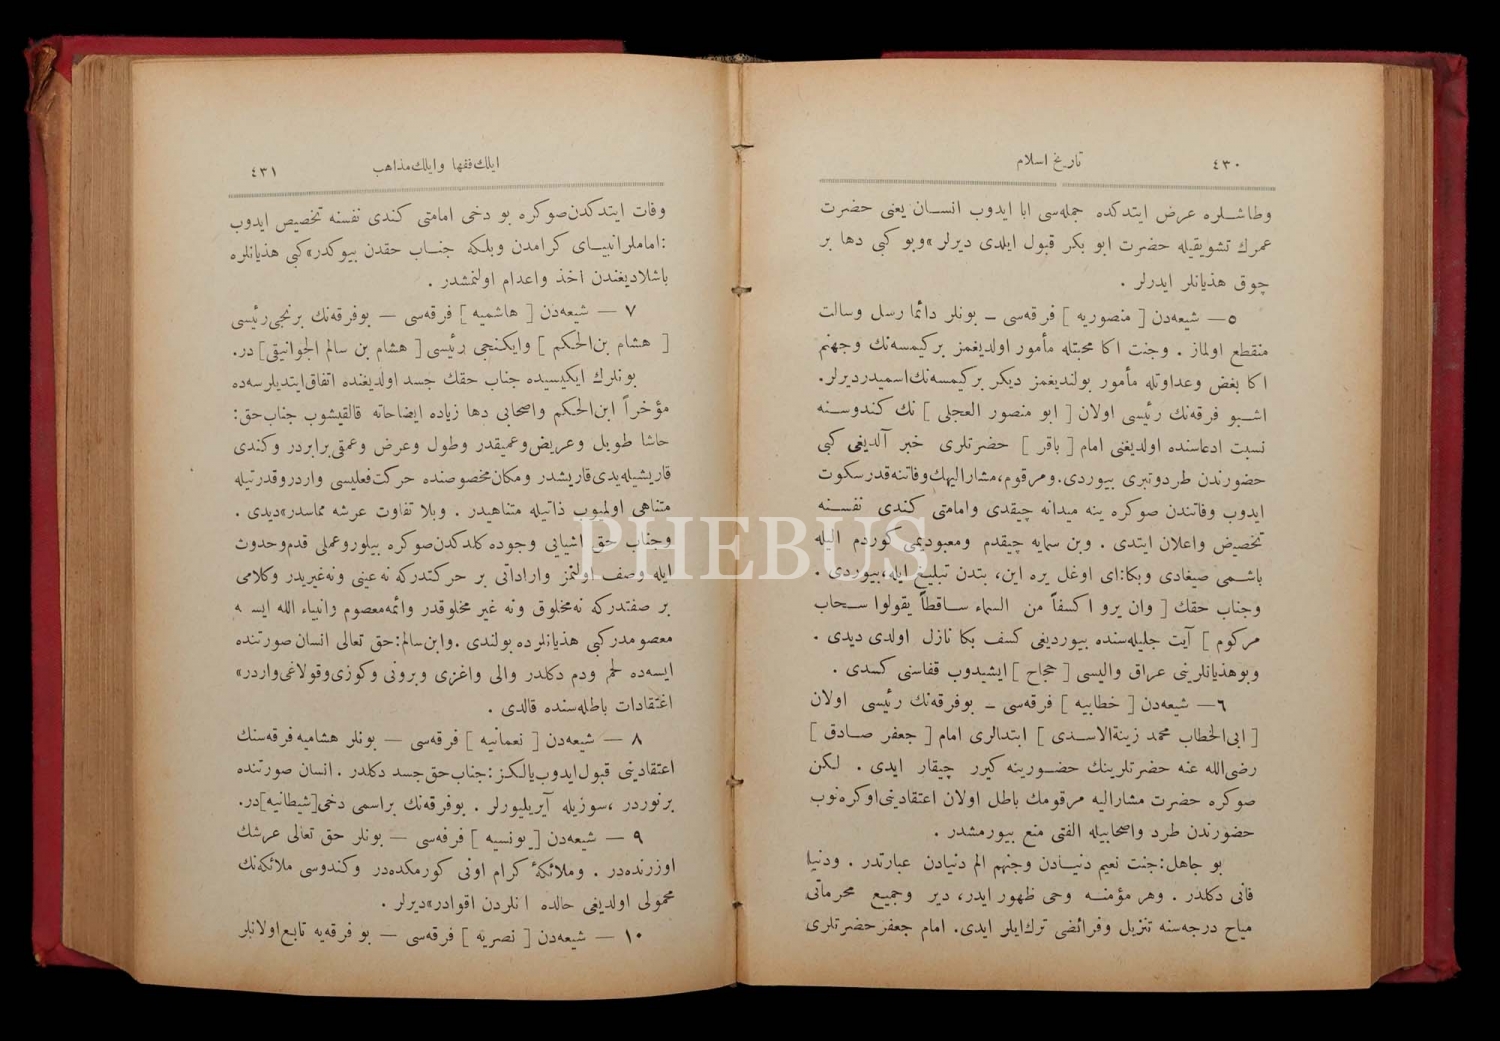 ٤٣٠
تاريخ اسلام
وطاشلره عرض ايتدكده جمله‌سى ابا ايدوب انسان يعنى حضرت
عمرك تشويقيله حضرت ابو بكر قبول ايلدى ديرلر » وبو كبى دها بر
چوق هذيانلر ايدرلر .
٥ — شيعه‌دن [ منصوريه ] فرقه‌سى ـ بونلر دائما رسل وسالت
منقطع اولماز . وجنت اكا محبتله مأمور اولديغمز بركيمسه‌نك وجهنم
اكا بغض وعداوتله مأمور بولنديغمز ديكر بركيمسه‌نك اسميدر ديرلر.
اشبو فرقه‌نك رئيسى اولان [ ابو منصور العجلى ] نك كندوسنه
نسبت ادعاسنده اولديغى امام [ باقر ] حضرتلرى خبر آلديغى كبى
حضورندن طرد وتبرى بيوردى. ومرقوم، مشاراليهك وفاتنه قدر سكوت
ايدوب وفاتندن صوكره ينه ميدانه چيقدى وامامتى كندى نفسنه
تخصيص واعلان ايتدى . وبن سمايه چيقدم ومعبوديمى كوردم اليله
باشمى صيغادى وبكا: اى اوغل يره اين، بتدن تبليغ ايله، بيوردى .
وجناب حقك [ وان يرو اكسفاً من السماء ساقطاً يقولوا سحاب
مركوم ] آيت جليله‌سنده بيورديغى كسف بكا نازل اولدى ديدى .
وبو هذيانلرينى عراق واليسى [ حجاج ] ايشيدوب قفاسنى كسدى .
٦ — شيعه‌دن [ خطابيه ] فرقه‌سى ـ بوفرقه‌نك رئيسى اولان
[ ابى الخطاب محمد زينة الاسدى ] ابتدالرى امام [ جعفر صادق ]
رضى الله عنه حضرتلرينك حضورينه كيرر چيقار ايدى . لكن
صوكره حضرت مشاراليه مرقومك باطل اولان اعتقادينى اوكره‌نوب
حضورندن طرد واصحابيله الفتى منع بيورمشدر .
بو جاهل: جنت نعيم دنيادن وجنهم الم دنيادن عبارتدر . ودنيا
فانى دكلدر . وهر مؤمنه وحى ظهور ايدر، دير وجميع محرماتى
مباح درجه‌سنه تنزيل وفرائضى ترك ايلر ايدى. امام جعفر حضرتلرى
ايلك فقها وايلك مذاهب
٤٣١
وفات ايتدكدن صوكره بو دخى امامتى كندى نفسنه تخصيص ايدوب
:امامل انبياى كرامدن وبلكه جناب حقدن بيوكدر » كبى هذيانلره
باشلاديغندن اخذ واعدام اولنمشدر .
٧ — شيعه‌دن [ هاشميه ] فرقه‌سى — بوفرقه‌نك برنجى رئيسى
[ هشام بن الحكم ] وايكنجى رئيسى [ هشام بن سالم الجوانيقى ] در.
بونلرك ايكيسيده جناب حقك جسد اولديغنده اتفاق ايتديلرسه‌ده
مؤخراً ابن الحكم واصحابى دها زياده ايضاحاته قالقيشوب جناب حق:
حاشا طويل وعريض وعميقدر وطول وعرض وعمقى برابردر وكندى
قاريشيله يدى قاريشدر ومكان مخصوصنده حركت فعليسى واردر وقدرتيله
متناهى اولميوب ذاتيله متناهيدر . وبلا تفاوت عرشه مماسدر » ديدى .
وجناب حق اشيايى وجوده كلدكدن صوكره بيلور وعملى قدم وحدوث
ايله وصف اولنمز واراداتى بر حركتدركه نه عينى ونه غيريدر وكلامى
بر صفتدركه نه مخلوق ونه غير مخلوقدر وائمه معصوم وانبياء الله ايسه
معصومدر كبى هذيانلرده بولندى . وابن سالم: حق تعالى انسان صورتنده
ايسه‌ده لحم ودم دكلدر والى واغزى وبرونى وكوزى وقولاغى واردر »
اعتقادات باطله‌سنده قالدى .
٨ — شيعه‌دن [ نعمانيه ] فرقه‌سى — بونلر هشاميه فرقه‌سنك
اعتقادينى قبول ايدوب يالكز: جناب حق جسد دكلدر . انسان صورتنده
برنوردر ، سوزيله آيريليورلر . بوفرقه‌نك براسمى دخى [شيطانيه] در.
٩ — شيعه‌دن [ يونسيه ] فرقه‌سى — بونلر حق تعالى عرشك
اوزرنده‌در . وملائكۀ كرام اونى كورمكده‌در وكندوسى ملائكه‌نك
محمولى اولديغى حالده انلردن اقوادر » ديرلر .
١٠ — شيعه‌دن [ نصريه ] فرقه‌سى — بو فرقه‌يه تابع اولانلر
PHEBUS